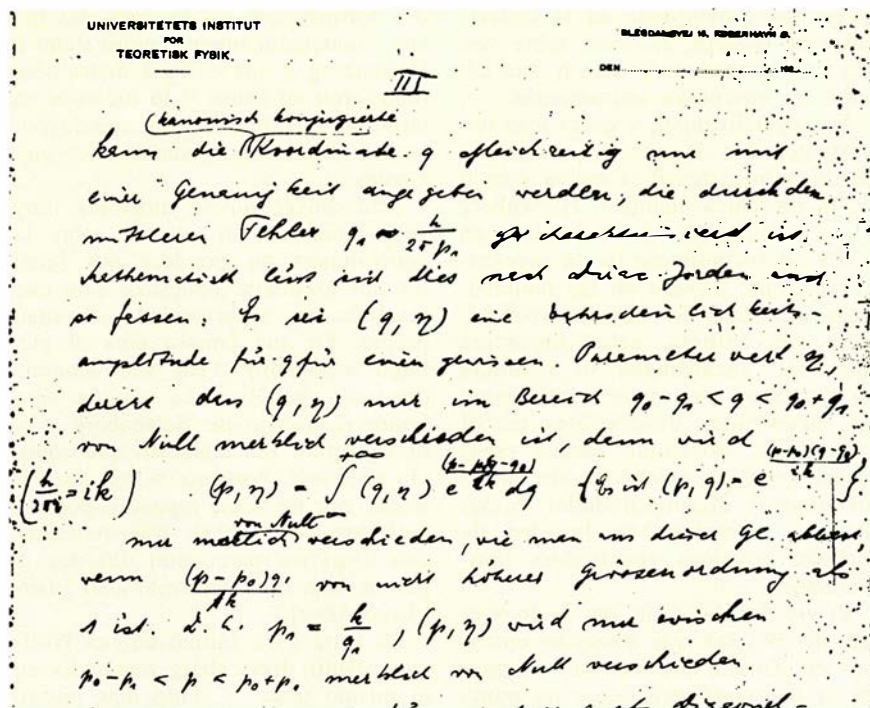 UNIVERSITETETS INSTITUT
FOR
TEORETISK FYSIK.
BLEGDAMSVEJ 15, KØBENHAVN Ø.
DEN 192
III
(kanonisch konjugierte
kann die Koordinate q gleichzeitig nur mit
einer Genauigkeit angegeben werden, die durch den
mittlerer Fehler q₁ ∞ h/2πp₁ ist.
lässt sich dies nach Jordan
so fassen: Es sei (q, η) eine Wahrscheinlichkeits-
amplitude für q für einen gewissen Parameterwert η,
derart dass (q, η) nur im Bereich q₀-q₁ < q < q₀+q₁
von Null merklich verschieden ist, dann wird
(h/2πi = ik) (p, η) = ∫ (q, η) e^((p-p₀)(q-q₀)/ik) dq {Es ist (p, q) = e^((p-p₀)(q-q₀)/ik)}.
von Null
nur merklich verschieden, wie man aus dieser Gl. abliest,
wenn (p-p₀)q₁/ik von nicht höherer Grössenordnung als
1 ist. d. h. p₁ = k/q₁, (p, η) wird nur zwischen
p₀-p₁ < p < p₀+p₁ merklich von Null verschieden.